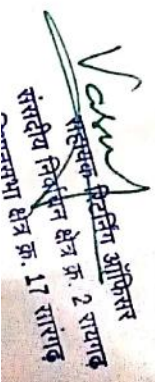 सहायक रिटर्निंग ऑफिसर
संसदीय निर्वाचन क्षेत्र क्र. 2 रायगढ
विधानसभा क्षेत्र क्र. 17 सारंगढ